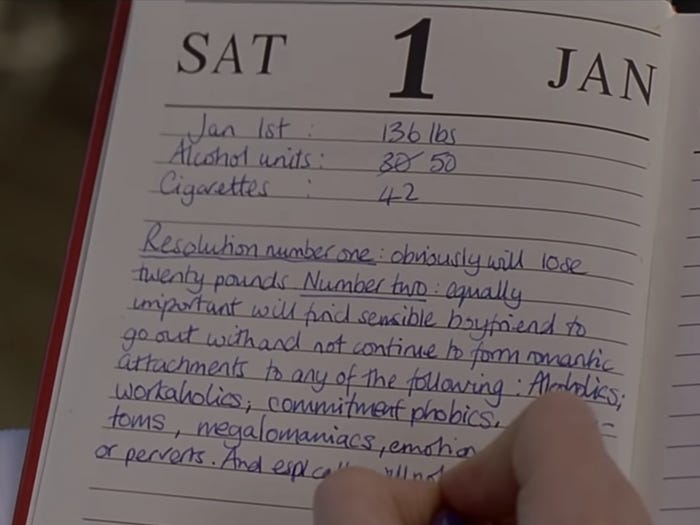 SAT 1 JAN
Jan 1st : 136 lbs
Alcohol units : 30 50
Cigarettes : 42
Resolution number one : obviously will lose
twenty pounds Number two : equally
important will find sensible boyfriend to
go out with and not continue to form romantic
attachments to any of the following : Alcoholics;
workaholics; commitment phobics,
toms, megalomaniacs,
or perverts. And